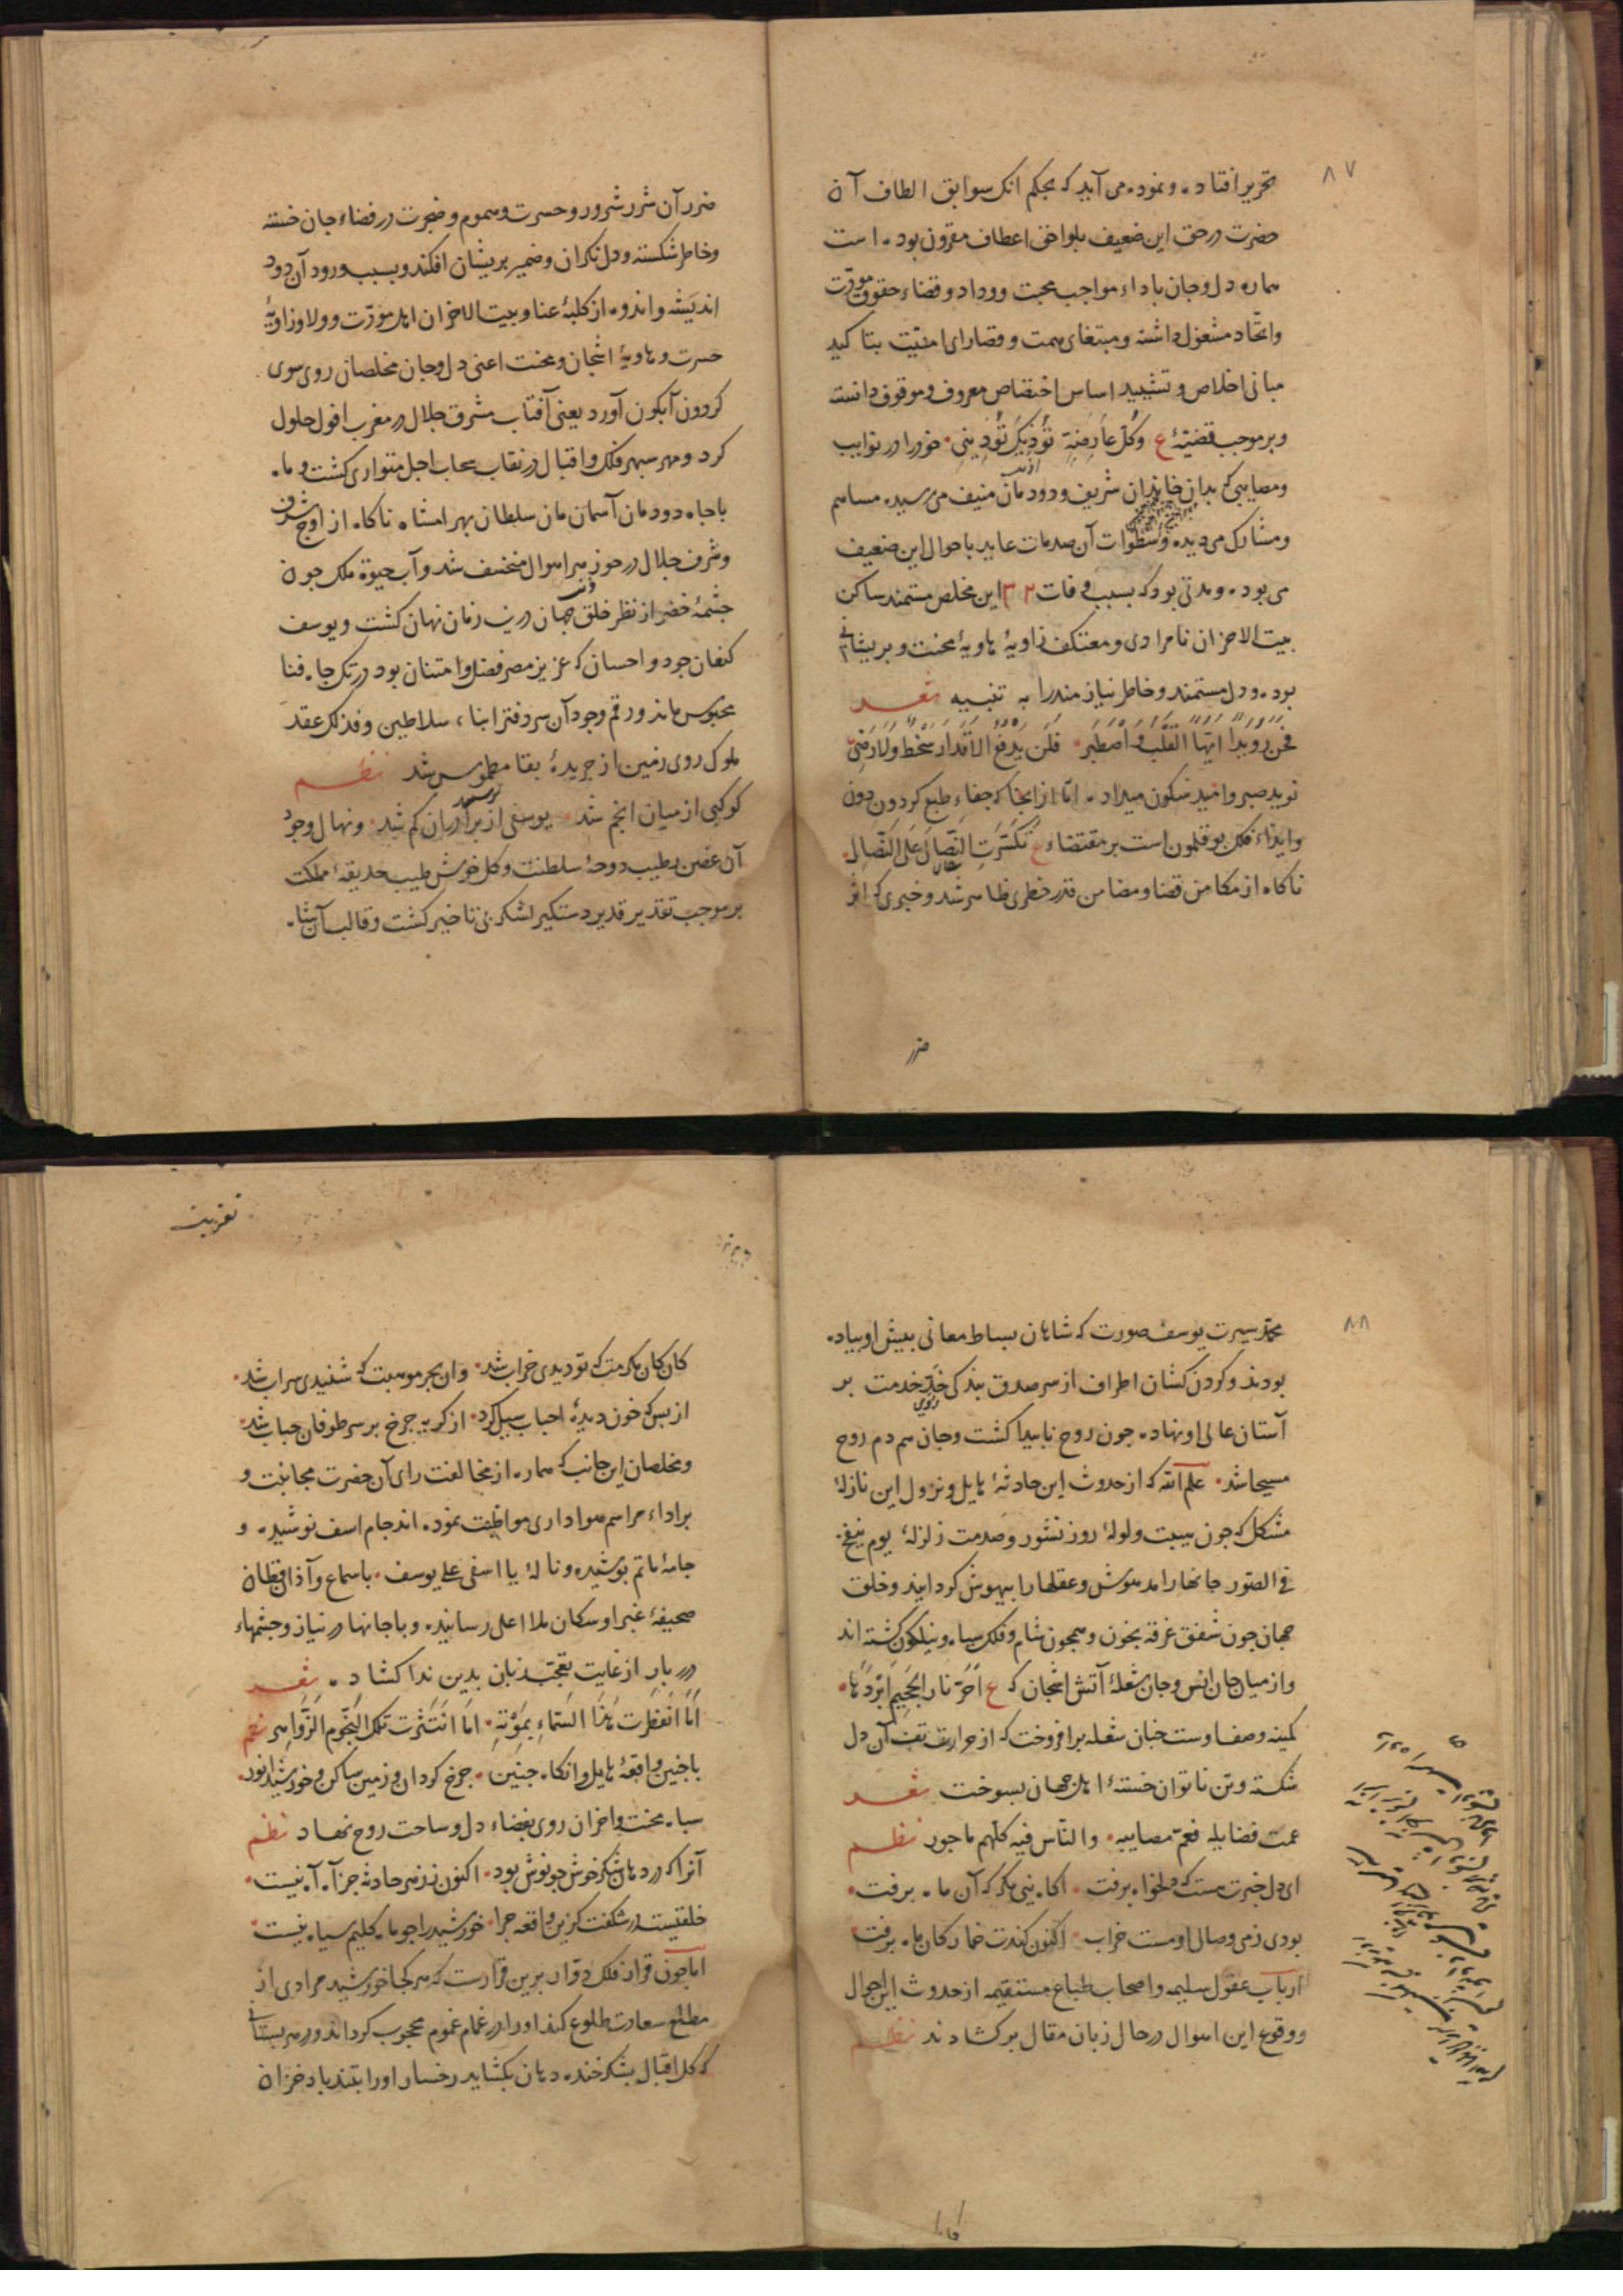 ۸۷
تحریر افتاده و نموده می آید که بحکم انک سوابق الطاف آن
حضرت در حق این ضعیف بلواحق اعطاف مقرون بوده است
هماره دل و جان باداء مواجب محبت و وداد و قضاء حقوق مودّت
واتّحاد مشغول داشته و مبتغای همت و قصارای امنیّت بتاکید
مبانی اخلاص و تشیید اساس اختصاص معروف و موقوف دانسته
و بر موجب قضیّهٔ ع وکلّ عارضة تؤذیک تؤذینی خود را در نوایب
و مصایبی که بدان خاندان شریف و دودمان منیف می رسیده مساهم
و مشارک می دیده و سطوات آن صدمات عاید باحوال این ضعیف
می بوده و مدتی بود که بسبب وفات این مخلص مستمند ساکن
بیت الاحزان نامرادی و معتکف زاویهٔ هاویهٔ محنت و پریشانی
بوده و دل مستمند و خاطر نیازمند را به تنبیه شعر
رویدا ایّها القلب و اصطبر فلن یدفع الاقدار سخط ولا رضی
نوید صبر و امید سکون میداد اما از انجا که جفاء طبع کردون دون
و ایذاء فلک بوقلمون است بر مقتضاء ع تکسّرت النّصال علی النّصال
ناکاه از مکامن قضا و مضامن قدر خطری ظاهر شد و خبری که اثر
ضرر
ضرر آن شرر شرور و حسرت و هموم و ضجرت در فضاء جان خسته
و خاطر شکسته و دل نکران و ضمیر پریشان افکند و بسبب ورود آن دود
اندیشه و اندوه از کلبهٔ عنا و بیت الاحزان اهل مودّت و ولا و زاویهٔ
حسرت و هاویهٔ اشجان و محنت اعنی دل و جان مخلصان روی سوی
کردون آبکون آورد یعنی آفتاب مشرق جلال در مغرب افول حلول
کرد و مهر سپهر فلک و اقبال در نقاب سحاب اجل متواری کشت و ماه
با جاه دودمان آسمان مان سلطان بهرامشاه ناکاه از اوج شرف
و شرف جلال در حوزهر اهوال منخسف شد و آب حیوة ملک چون
چشمهٔ خضر از نظر خلق جهان درین زمان نهان کشت و یوسف
کنعان جود و احسان که عزیز مصر فضل و امتنان بود در تک چاه فنا
محبوس ماند و رقم وجود آن سر دفتر ابناء سلاطین و فذلک عقد
ملوک روی زمین از جریدهٔ بقا مطموس شد نظم
کوکبی از میان انجم شد یوسفی از برادران کم شد و نهال وجود
آن غصن رطیب دوحهٔ سلطنت و کل خوش طیب حدیقهٔ مملکت
بر موجب تقدیر قدیر دستکیر لشکر بی تاخیر کشت و قالب آن شاه
۸۸
محمّد سیرت یوسف صورت که شاهان بساط معانی پیش او پیاده
بودند و کردن کشان اطراف از سر صدق بندکی خدّ خدمت بر
آستان عالی او نهاده چون روح ناپیدا کشت و جان هم دم روح
مسیحا شد علم الله که از حدوث این حادثهٔ هایل و نزول این نازلهٔ
مشکل که چون هیبت ولولهٔ روز نشور و صدمت زلزلهٔ یوم ینفخ
فی الصّور جانها را مدهوش و عقلها را بیهوش کردانید و خلق
جهان چون شفق غرقه بخون و همچون شام و فلک سیاه و نیلکون کشته اند
و از میان جان انس و جان شعلهٔ آتش اشجان که ع احرّ نار الجحیم ابردها
کمینه وصف اوست چنان شعله برافروخت که از حرارت تف آن دل
شکسته و تن ناتوان خستهٔ اهل جهان بسوخت شعر
عمّت فضایله فعمّ مصابیه والنّاس فیه کلّهم ماجور نظم
ای دل خبرت هست که دلخواه برفت اکاه نیی مکر که آن ماه برفت
بودی ز می وصال او مست خراب اکنون کندت خمار کان ماه برفت
ارباب عقول سلیمه و اصحاب طباع مستقیمه از حدوث این احوال
و وقوع این اهوال در حال زبان مقال برکشادند نظم
تعزیت
کان کان مکرمت که تو دیدی خراب شد وان بحر موهبت که شنیدی سراب شد
از بس که خون دیدهٔ احباب سیل کرد از کریه چرخ بر سر طوفان حباب شد
و مخلصان این جانب که هماره از مخالفت رای آن حضرت مجانبت و
بر اداء مراسم هواداری مواظبت نموده اند جام اسف نوشیده و
جامهٔ ماتم پوشیده و نالهٔ یا اسفی علی یوسف باسماع و آذان قطان
صحیفهٔ غبرا و سکان ملا اعلی رسانیده و با جانها در نیاز و چشمهاء
درر بار از غایت تعجّب زبان بدین ندا کشاده شعر
اما انفطرت هذا السّماء بموته اما انتثرت تلک النّجوم الزّواهر نظم
با چنین واقعهٔ هایل و انکاه چنین چرخ کردان و زمین ساکن و خورشید انور
سپاه محنت و احزان روی بفضاء دل و ساحت روح نهاد نظم
آنرا که در دهان شکر خوش چو نوش بود اکنون ز زهر حادثه جز آه آه نیست
خلقیست در شکفت کزین واقعه چرا خورشید را چو ماه کلیم سیاه نیست
اما چون قرار فلک دوّار برین قرارست که هر کجا خورشید مرادی از
مطلع سعادت طلوع کند او را در غمام غموم محجوب کرداند و در هر بستانی
که کل اقبال بشکر خنده دهان بکشاید رخسار او را بتند باد خزان